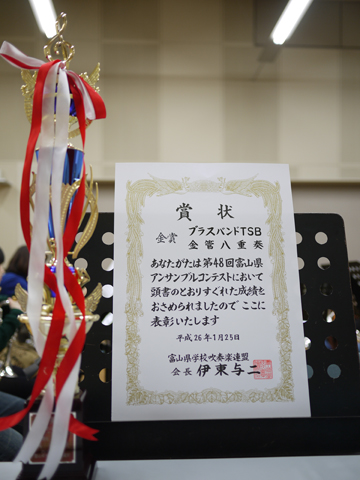 賞状
金賞 ブラスバンドTSB
金管八重奏
あなたがたは第48回富山県
アンサンブルコンテストにおいて
頭書のとおりすぐれた成績を
おさめられましたのでここに
表彰いたします
平成26年1月25日
富山県学校吹奏楽連盟
会長 伊東与二